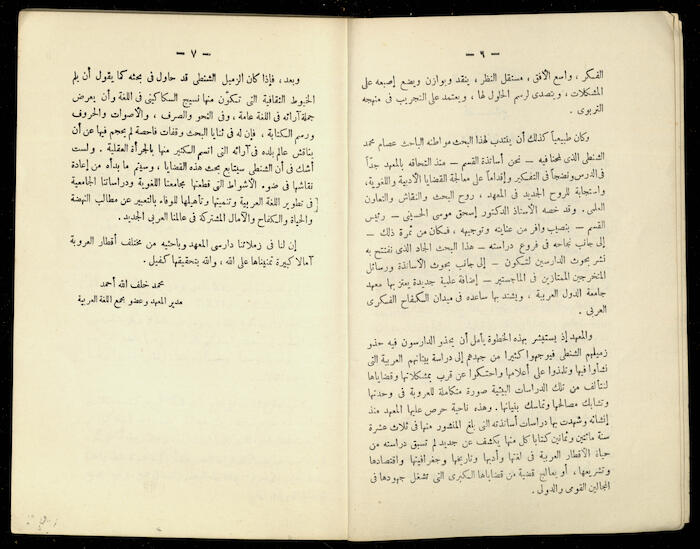 — ٦ —
الفكر ، واسع الأفق ، مستقل النظر ، ينقد ويوازن ويضع إصبعه على
المشكلات ، ويتصدى لرسم الحلول لها ، ويعتمد على التجريب فى منهجه
التربوى .
وكان طبيعياً كذلك أن يقتدب لهذا البحث مواطنه الباحث عصام محمد
الشنطى الذى لمحنا فيه — نحن أساتذة القسم — منذ التحاقه بالمعهد جدّاً
فى الدرس ونضجاً فى التفكير وإقداماً على معالجة القضايا الأدبية واللغوية،
واستجابة للروح الجديد فى المعهد ، روح البحث والنقاش والتعاون
العلمى . وقد خصه الأستاذ الدكتور إسحق موسى الحسينى — رئيس
القسم — بنصيب وافر من عنايته وتوجيهه ، فكان من ثمرة ذلك —
إلى جانب نجاحه فى فروع دراسته — هذا البحث الجاد الذى نفتتح به
نشر بحوث الدارسين لتكون — إلى جانب بحوث الأساتذة ورسائل
المتخرجين الممتازين فى الماجستير — إضافة علمية جديدة يعتز بها معهد
جامعة الدول العربية ، ويشتد بها ساعده فى ميدان الكفاح الفكرى
العربى .
والمعهد إذ يستبشر بهذه الخطوة يأمل أن يحذو الدارسون فيه حذو
زميلهم الشنطى فيوجهوا كثيرا من جهدهم إلى دراسة بيئاتهم العربية التى
نشأوا فيها وتلمذوا على أعلامها واحتكوا عن قرب بمشكلاتها وقضاياها
لتتألف من تلك الدراسات البيئية صورة متكاملة للعروبة فى وحدتها
وتشابك مصالحها وتماسك بنيانها . وهذه ناحية حرص عليها المعهد منذ
إنشائه وشهدت بها دراسات أساتذته التى بلغ المنشور منها فى ثلاث عشرة
سنة مائتين وثمانين كتابا كل منها يكشف عن جديد لم تسبق دراسته من
حياة الأقطار العربية فى لغتها وأدبها وتاريخها وجغرافيتها واقتصادها
وتشريعها ، أو يعالج قضية من قضاياها الكبرى التى تشغل جهودها فى
المجالين القومى والدولى .
— ٧ —
وبعد ، فإذا كان الزميل الشنطى قد حاول فى بحثه كما يقول أن يلم
الخيوط الثقافية التى تتكوّن منها نسيج السكاكينى فى اللغة وأن يعرض
جملة آرائه فى اللغة عامة ، وفى النحو والصرف ، والأصوات والحروف
ورسم الكتابة ، فإن له فى ثنايا البحث وقفات فاحصة لم يحجم فيها عن أن
يناقش عالم بلده فى آرائه التى اتسم الكثير منها بالجرأة العقلية . ولست
أشك فى أن الشنطى سيتابع بحث هذه القضايا ، وسيتم ما بدأه من إعادة
نقاشها فى ضوء الأشواط التى قطعتها مجامعنا اللغوية ودراساتنا الجامعية
فى تطوير اللغة العربية وتنميتها وتأهيلها للوفاء بالتعبير عن مطالب النهضة
والحياة والكفاح والآمال المشتركة فى عالمنا العربى الجديد .
إن لنا فى زملائنا دارسى المعهد وباحثيه من مختلف أقطار العروبة
آمالا كبيرة تمنيناها على الله ، والله بتحقيقها كفيل .
محمد خلف الله أحمد
مدير المعهد وعضو مجمع اللغة العربية